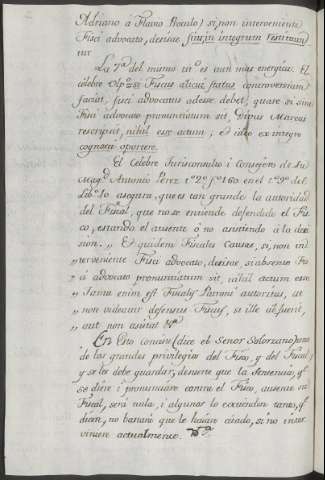 Adriano á Flavo Proculo) si, non interveniente
Fisci advocato, decisae sint in integrum restituun-
tur.
La 7ª del mismo titº es aun mas energica. El
célebre Ulpº Si Fiscus alicui status controversiam
faciat, fisci advocatus adesse debet, quare si sine
Fisci advocato pronunciatum sit, Divus Marcus
rescripsit, nihil esse actum; et ideo ex integro
cognosci oportere.
El Celebre Jurisconsulto i Consejero de Su
Magd Antonio Perez tº 2º fº 160. en el tº 9º del
Libº 10 asegura, que es tan grande la autoridad
del Fiscal, que no se entiende defendido el Fis-
co, estando el ausente ó no asistiendo á la deci-
sion. " Et quidem Fiscales Causae, si, non in-
" terveniente Fisci advocato, decisae, si absente Fis-
" ci advocato pronunciatum sit, nihil actum esse
" Tanta enim est Fiscalis Patroni autoritas, ut
" non videatur defensus Fiscus, si ille absent,
" aut non asistat &ª
En Dro Comun (dice el Señor Solorzano) uno
de los grandes privilegios del Fisco, y del Fiscal,
y se les debe guardar, denota que la Sentencia, qe
se diere i pronunciare contra el Fisco, ausente el
Fiscal, será nula, i algunos lo extienden tanto, qe
dicen, no bastará que le hubiere citado, si no inter-
viniere actualmente.